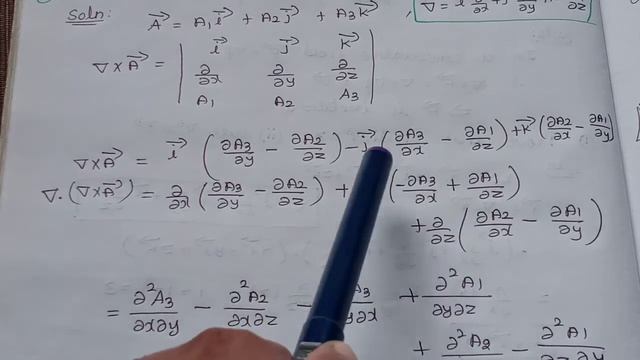 Soln: A⃗ = A₁ i⃗ + A₂ j⃗ + A₃ k⃗ , ∇ =
∇ × A⃗ = | i⃗ j⃗ k⃗ |
| ∂/∂x ∂/∂y ∂/∂z |
| A₁ A₂ A₃ |
∇×A⃗ = i⃗ (∂A₃/∂y − ∂A₂/∂z) − j⃗ (∂A₃/∂x − ∂A₁/∂z) + k⃗ (∂A₂/∂x − ∂A₁/∂y)
∇·(∇×A⃗) = ∂/∂x (∂A₃/∂y − ∂A₂/∂z) + (−∂A₃/∂x + ∂A₁/∂z)
+ ∂/∂z (∂A₂/∂x − ∂A₁/∂y)
= ∂²A₃/∂x∂y − ∂²A₂/∂x∂z − A₃/∂y∂x + ∂²A₁/∂y∂z
+ ∂²A₂ − ∂²A₁